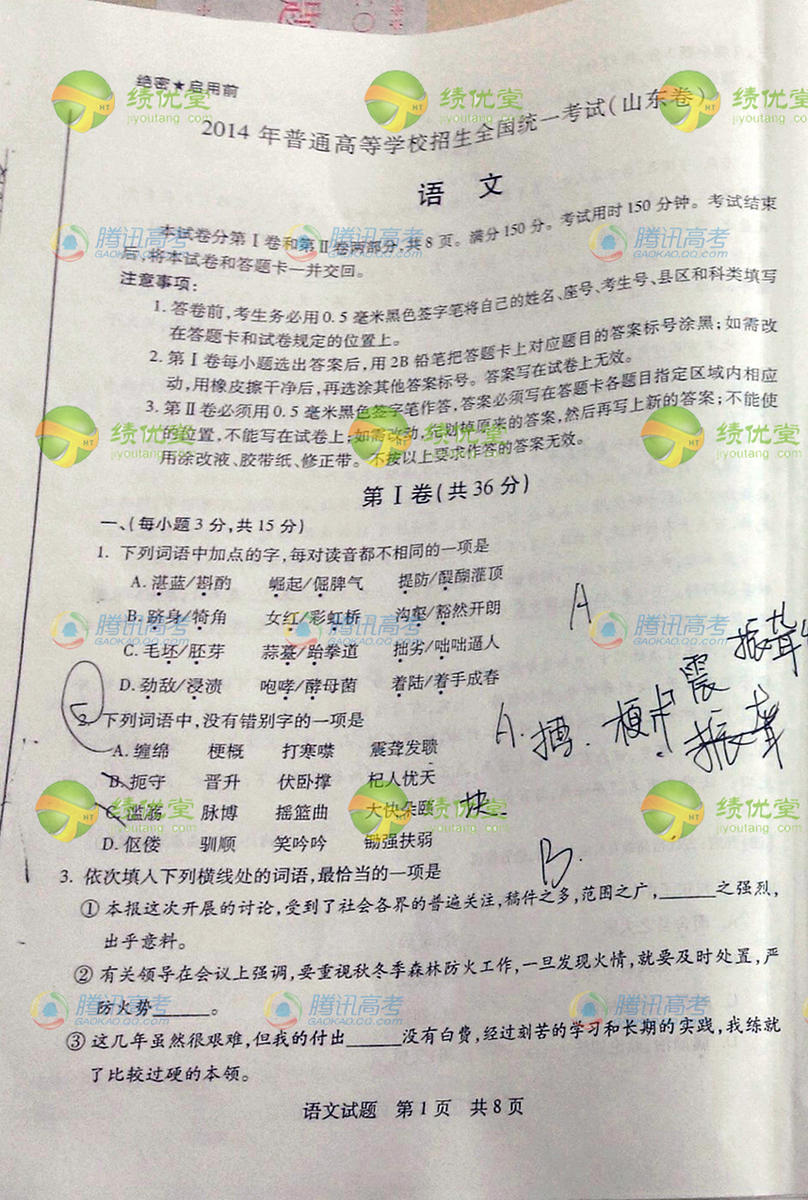 绝密★启用前
2014年普通高等学校招生全国统一考试(山东卷)
语 文
本试卷分第Ⅰ卷和第Ⅱ卷两部分,共8页。满分150分。考试用时150分钟。考试结束
后,将本试卷和答题卡一并交回。
注意事项:
1.答卷前,考生务必用0.5毫米黑色签字笔将自己的姓名、座号、考生号、县区和科类填写
在答题卡和试卷规定的位置上。
2.第Ⅰ卷每小题选出答案后,用2B铅笔把答题卡上对应题目的答案标号涂黑;如需改
动,用橡皮擦干净后,再选涂其他答案标号。答案写在试卷上无效。
3.第Ⅱ卷必须用0.5毫米黑色签字笔作答,答案必须写在答题卡各题目指定区域内相应
的位置,不能写在试卷上;如需改动,先划掉原来的答案,然后再写上新的答案;不能使
用涂改液、胶带纸、修正带。不按以上要求作答的答案无效。
第Ⅰ卷(共36分)
一、(每小题3分,共15分)
1. 下列词语中加点的字,每对读音都不相同的一项是
A.湛蓝/斟酌 崛起/倔脾气 提防/醍醐灌顶
B.跻身/犄角 女红/彩虹桥 沟壑/豁然开朗
A
C.毛坯/胚芽 蒜薹/跆拳道 拙劣/咄咄逼人
D.劲敌/浸渍 咆哮/酵母菌 着陆/着手成春
2. 下列词语中,没有错别字的一项是
A.缠绵 梗概 打寒噤 震聋发聩
A. 梗 震 振聋
B.扼守 晋升 伏卧撑 杞人忧天
C.滥觞 脉博 摇篮曲 大快朵颐 快
D.伛偻 驯顺 笑吟吟 锄强扶弱
B.
3. 依次填入下列横线处的词语,最恰当的一项是
①本报这次开展的讨论,受到了社会各界的普遍关注,稿件之多,范围之广,______之强烈,
出乎意料。
②有关领导在会议上强调,要重视秋冬季森林防火工作,一旦发现火情,就要及时处置,严
防火势______。
③这几年虽然很艰难,但我的付出______没有白费,经过刻苦的学习和长期的实践,我练就
了比较过硬的本领。
语文试题 第1页 共8页
绩优堂
jiyoutang.com
腾讯高考
GAOKAO.QQ.COM